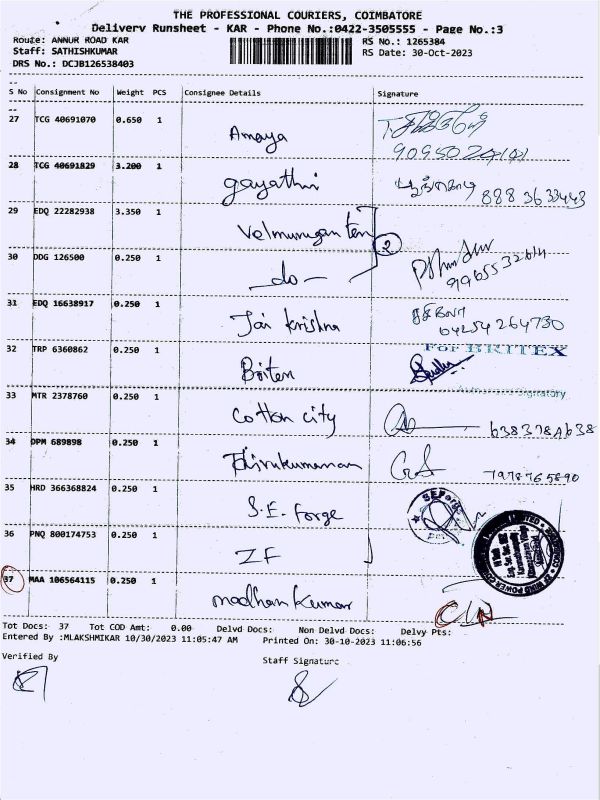 THE PROFESSIONAL COURIERS, COIMBATORE
Delivery Runsheet - KAR - Phone No.:0422-3505555 - Page No.:3
Route: ANNUR ROAD KAR
RS No.: 1265384
Staff: SATHISHKUMAR
RS Date: 30-Oct-2023
DRS No.: DCJB126538403
S No Consignment No Weight PCS Consignee Details Signature
27 TCG 40691070 0.650 1 Amaya
28 TCG 40691829 3.200 1 gayathri 888 3633443
29 EDQ 22282938 3.350 1 Velmurugan tex
2
30 DDG 126500 0.250 1 - do - 9965532614
31 EDQ 16638917 0.250 1 Jai krishna 04254 264730
32 TRP 6360862 0.250 1 Britex For BRITEX
Authorised Signatory
33 MTR 2378760 0.250 1 Cotton city
34 DPM 689898 0.250 1 Thirukumaran 7978765890
35 HRD 366368824 0.250 1 S.E. forge
36 PNQ 800174753 0.250 1 ZF
37 MAA 106564115 0.250 1 madhan kumar
Tot Docs: 37 Tot COD Amt: 0.00 Delvd Docs: Non Delvd Docs: Delvy Pts:
Entered By :MLAKSHMIKAR 10/30/2023 11:05:47 AM Printed On: 30-10-2023 11:06:56
Verified By
Staff Signature